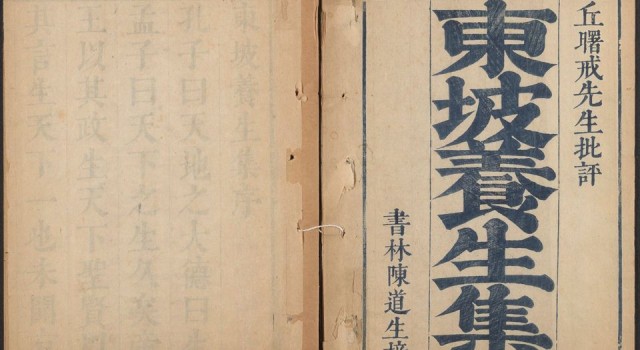 丘曙戒先生批評
東坡養生集
書林陳道生
東坡養生集序
孔子曰天地之大德曰生
孟子曰天下之生久矣
王以其政生天下聖賢以
其言生天下一也